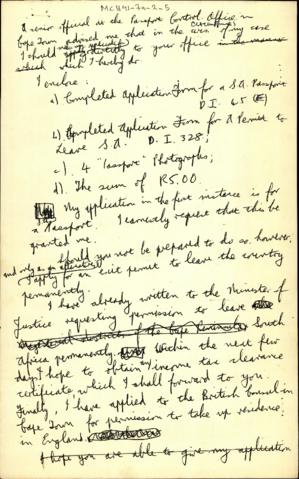 MCH91-7a-2-5
A senior official in the Passport Control Office in
Cape Town advised me that in the circumstances of my case
I should apply directly to your office in the manner
which I hereby do
I enclose:
a) Completed Application Form for a S.A. Passport
D.I. 65 (E)
b) Completed Application Form for A Permit to
Leave S.A. D.I. 328;
c). 4 "Passport" Photographs;
d). The sum of R5.00.
My application in the first instance is for
a Passport. I earnestly request that this be
granted me.
Should you not be prepared to do so, however,
and only as an alternative
I apply for an exit permit to leave the country
permanently.
I have already written to the Minister of
Justice requesting permission to leave the
magisterial district of the Cape Peninsula South
Africa permanently. Within the next few
days I hope to obtain my income tax clearance
certificate which I shall forward to you.
Finally, I have applied to the British Consul in
Cape Town for permission to take up residence
in England
I hope you are able to give my application